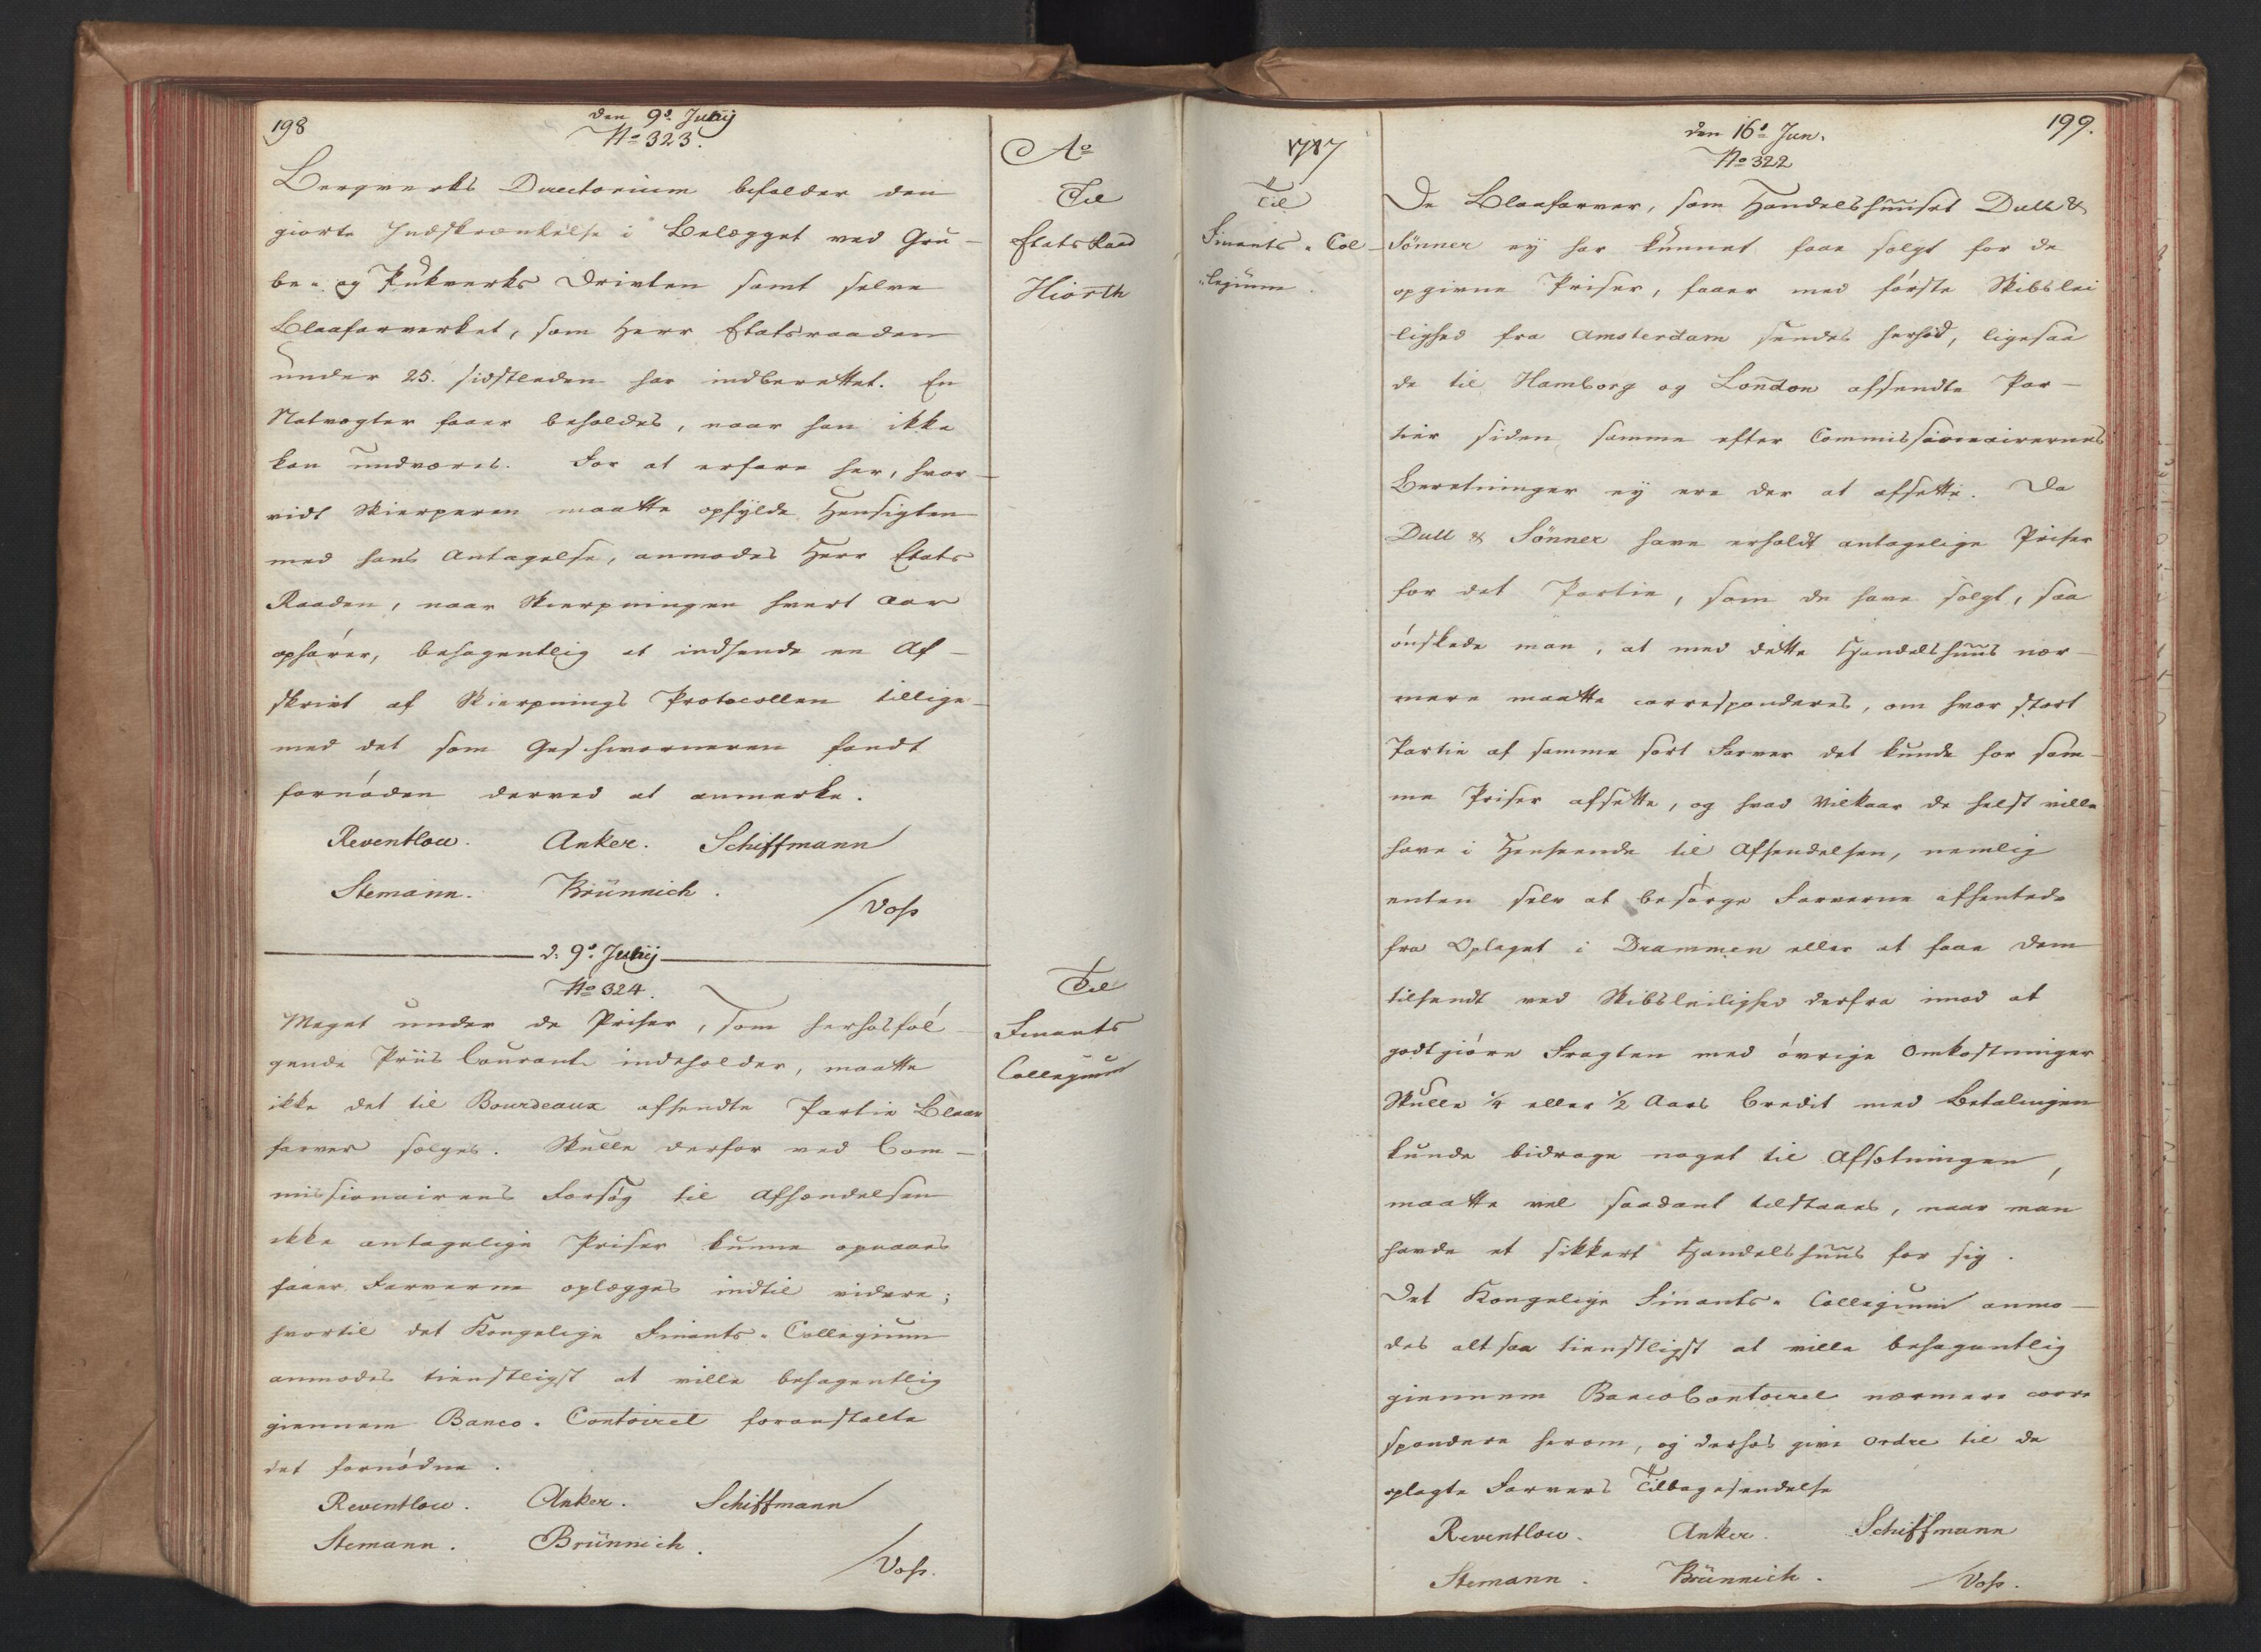 198
den 9de Julij
No 323.
Bergverks Directorium befalder den
giorte Indskrænkelse i Belægget ved Gru-
be- og Pukverks Drivten samt selve
Blaafarverket, som Herr Etatsraaden
under 25. sidstleden har indberettet. En
Natvægter faaer beholdes, naar han ikke
kan undværes. For at erfare her, hvor-
vidt Skierperen maatte opfylde Hensigten
med hans Antagelse, anmodes Herr Etats
Raaden, naar Skierpningen hvert Aar
ophører, behagentlig at indsende en Af-
skrivt af Skierpnings Protocollen tillige-
med det som Geschworneren fandt
fornøden derved at anmerke.
Reventlow. Anker. Schiffmann
Stemann. Brünnich.
/Voss
d. 9de Julij
No 324.
Meget under de Priser, som herhosføl-
gende Priis Courant indeholder, maatte
ikke det til Bourdeaux afsendte Partie Blaae
farver sælges. Skulle derfor ved Com-
missionairens Forsøg til Afhændelsen
ikke antagelige Priser kunne opnaaes
faaer Farverne oplægges indtil videre;
hvortil det Kongelige Finants-Collegium
anmodes tienstligst at ville behagentlig
giennem Banco-Contoiret foranstalte
det fornødne.
Reventlow. Anker. Schiffmann
Stemann. Brünnich.
/Voss.
Ao
Til
Etats Raad
Hiorth
Til
Finants
Collegium
1787
Til
Finants-Col-
legium.
199.
den 16de Jun.
No 322
De Blaafarver, som Handelshuuset Dull &
Sönner ey har kunnet faae solgt for de
opgivne Priser, faaer med første Skibslei
lighed fra Amsterdam sendes herhid, ligesaa
de til Hamborg og London afsendte Par-
tier siden samme efter Commissionairernes
Beretninger ey ere der at afsette. Da
Dull & Sönner have erholdt antagelige Priser
for det Partie, som de have solgt, saa
ønskede man, at med dette Handelshuus nær-
mere maatte corresponderes, om hvor stort
Partie af samme sort Farver det kunde for sam-
me Priser afsette, og hvad Vilkaar de helst ville
have i Henseende til Afsendelsen, nemlig
enten selv at besørge Farverne afhentede
fra Oplaget i Drammen eller at faae dem
tilsendt ved Skibsleilighed derfra imod at
godtgiøre Fragten med øvrige Omkostninger
Skulle 1/4 eller 1/2 Aars Credit med Betalingen
kunde bidrage noget til Afsetningen,
maatte vel saadant tilstaaes, naar man
havde et sikkert Handelshuus for sig.
Det Kongelige Finants-Collegium anmo-
des altsaa tienstligst at ville behagentlig
giennem BancoContoiret nærmere corre
spondere herom, og derhos give Ordre til de
oplagte Farvers Tilbagesendelse
Reventlow. Anker. Schiffmann
Stemann. Brünnich. /Voss.